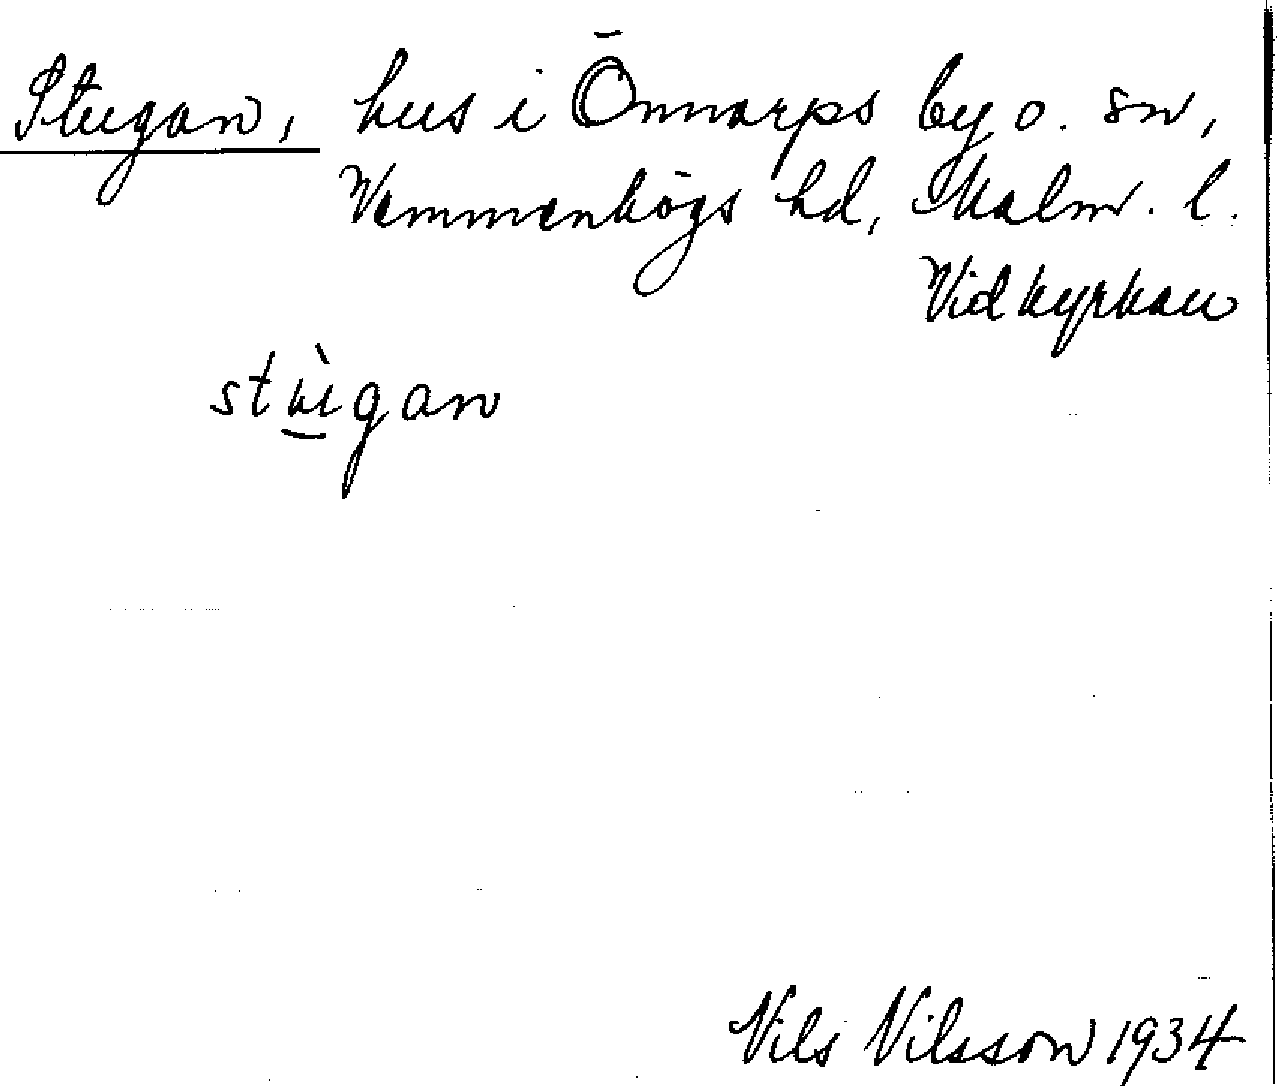 Stugan, hus i Önnarps by o. sn,
Vemmenhögs hd, Malm. l.
Vid kyrkan
stùgan
Nils Nilsson 1934